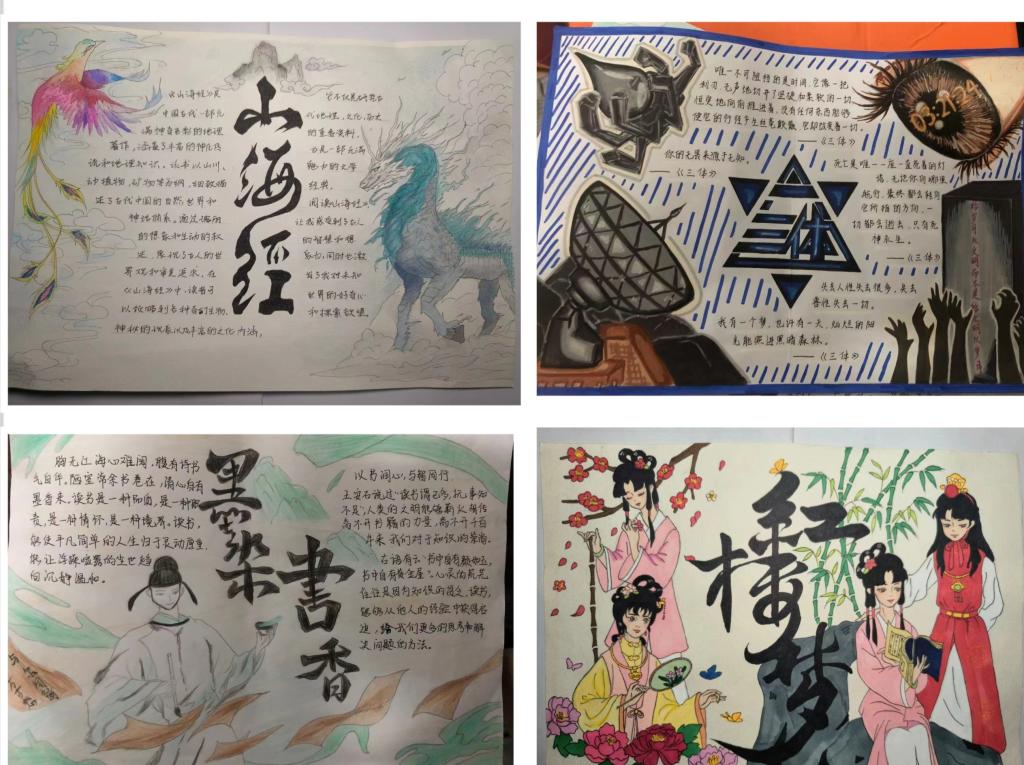 山海经
《山海经》是
中国古代一部充
满神奇色彩的地理
著作，涵盖了丰富的神化传
说和地理知识。该书以山川、
动植物、矿物等为纲，细致描
述了古代中国的自然世界和
神话体系。通过
的想象和生动的叙
述，展现了古人的世
界观和审美追求，在
《山海经》中，读者可
以领略到各种奇的生物、
神秘的传说以及丰富的文化内涵。
它不仅是研究古
代地理、文化、历史
的重要资料，
也是一部充满
魅力的文学
经典。
阅读山海经，
让我感受到古人
的智慧和想
象力，同时也激
发了我对未知
世界的好奇心
和探索欲望。
唯一不可阻挡的是时间，它像一把
利刃，无声地切开了坚硬和柔软的一切，
恒定地向前推进着，没有任何东西能够
使它的行径产生丝毫颠簸，它却改变着一切。
——《三体》
你的无畏来源于无知。
——《三体》
三体
死亡是唯一一座一直亮着的灯
塔，无论你向哪里
航行，最终都会转向
它所指的方向，一
切都会逝去，只有死
神永生。
——《三体》
失去人性失去很多，失去
兽性失去一切。
我有一个梦，也许有一天，灿烂的阳
光能照进黑暗森林。
——《三体》
墨染书香
胸无江海心难阔，腹有诗书
气自华。陋室常余书卷在，清心自有
墨香来。读书是一种
是一种情怀，是一种境界，读书，
能使平凡简单的人生归于灵动厚重，
能让浮躁喧嚣的尘世趋
向沉静温和。
以书润心，与智同行
王安石说过“读书谓已多，抚事知
不足”，人类的文明能够薪火相传
离不开书籍的力量，离不开千百
年来我们对于知识的崇尚。
古语有云：“书中自有颜如玉，
书中自有黄金屋”。心灵的荒芜
往往是因为知识的匮乏，读书，
能够从他人的经验中获得启
迪，给我们更多的思考和解
决问题的方法。
红楼梦